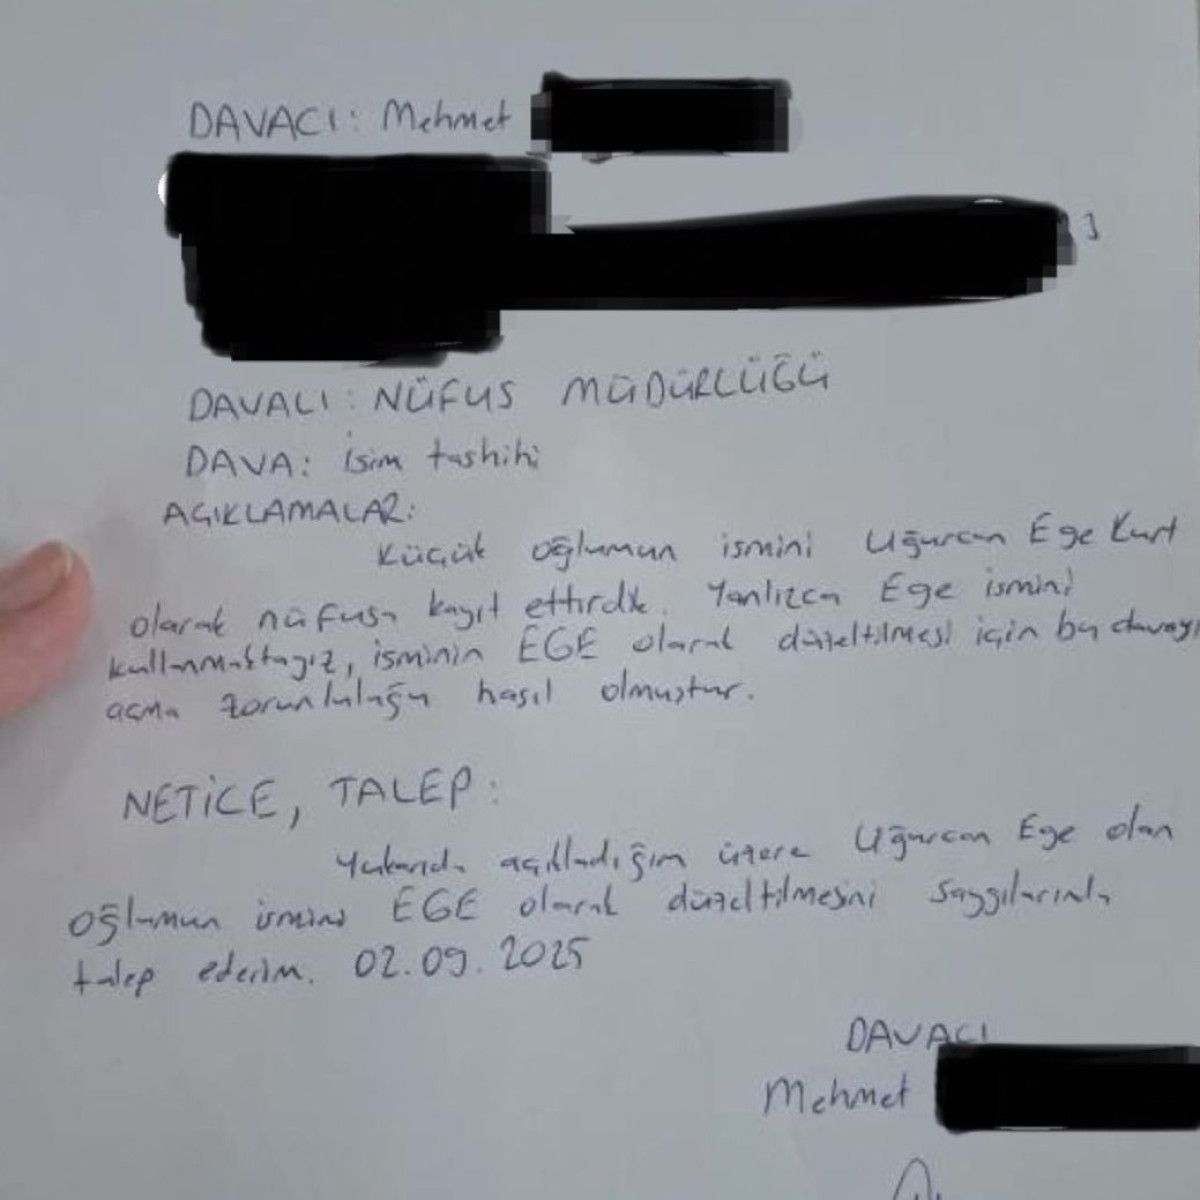 DAVACI: Mehmet
DAVALI: NÜFUS MÜDÜRLÜĞÜ
DAVA: İsim tashihi
AÇIKLAMALAR:
Küçük oğlumun ismini Uğurcan Ege Kurt
olarak nüfusa kayıt ettirdik. Yanlızca Ege ismini
kullanmaktayız, isminin EGE olarak düzeltilmesi için bu davayı
açma zorunluluğu hasıl olmuştur.
NETİCE, TALEP:
Yukarıda açıkladığım üzere Uğurcan Ege olan
oğlumun ismini EGE olarak düzeltilmesini saygılarımla
talep ederim. 02.09.2025
DAVACI
Mehmet